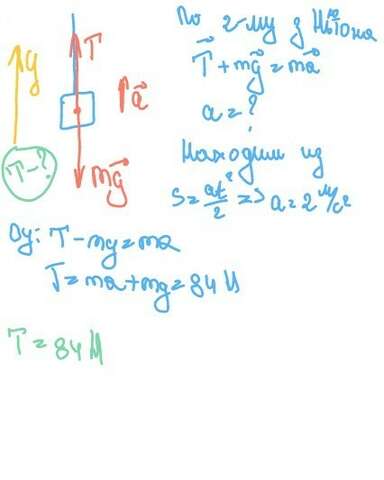 y
T
a⃗
mg⃗
T-?
По 2-му з Ньютона
T⃗ + mg⃗ = ma⃗
a = ?
Находим из
S = at²/2 => a = 2 м/с²
Oy: T - mg = ma
T = ma + mg = 84 Н
T = 84 Н